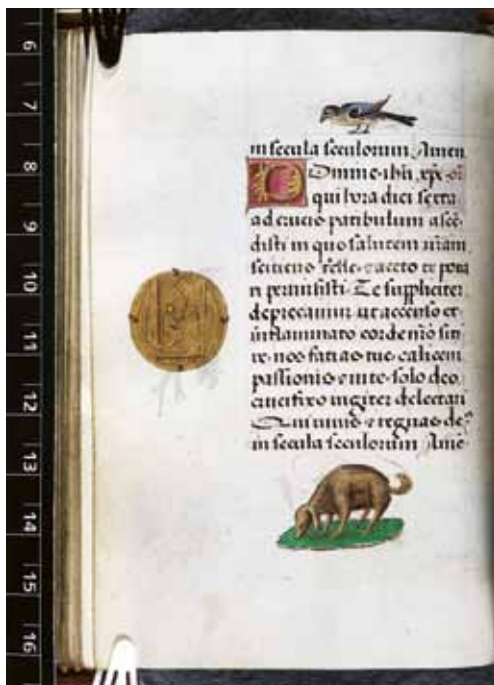 6
7
8
9
10
11
12
13
14
15
16
in secula seculorum Amen
Domine ihu xpe
qui hora diei sexta
ad crucis patibulum ascē
disti in quo salutem nr̄am
sitiens felle aceto te pota
ri permisisti Te suppliciter
deprecamur ut accenso et
inflammato corde nr̄o siti
re nos facias tue calicem
passionis et in te solo deo
crucifixo iugiter delectari
Qui uiuis et regnas
in secula seculorum Ame